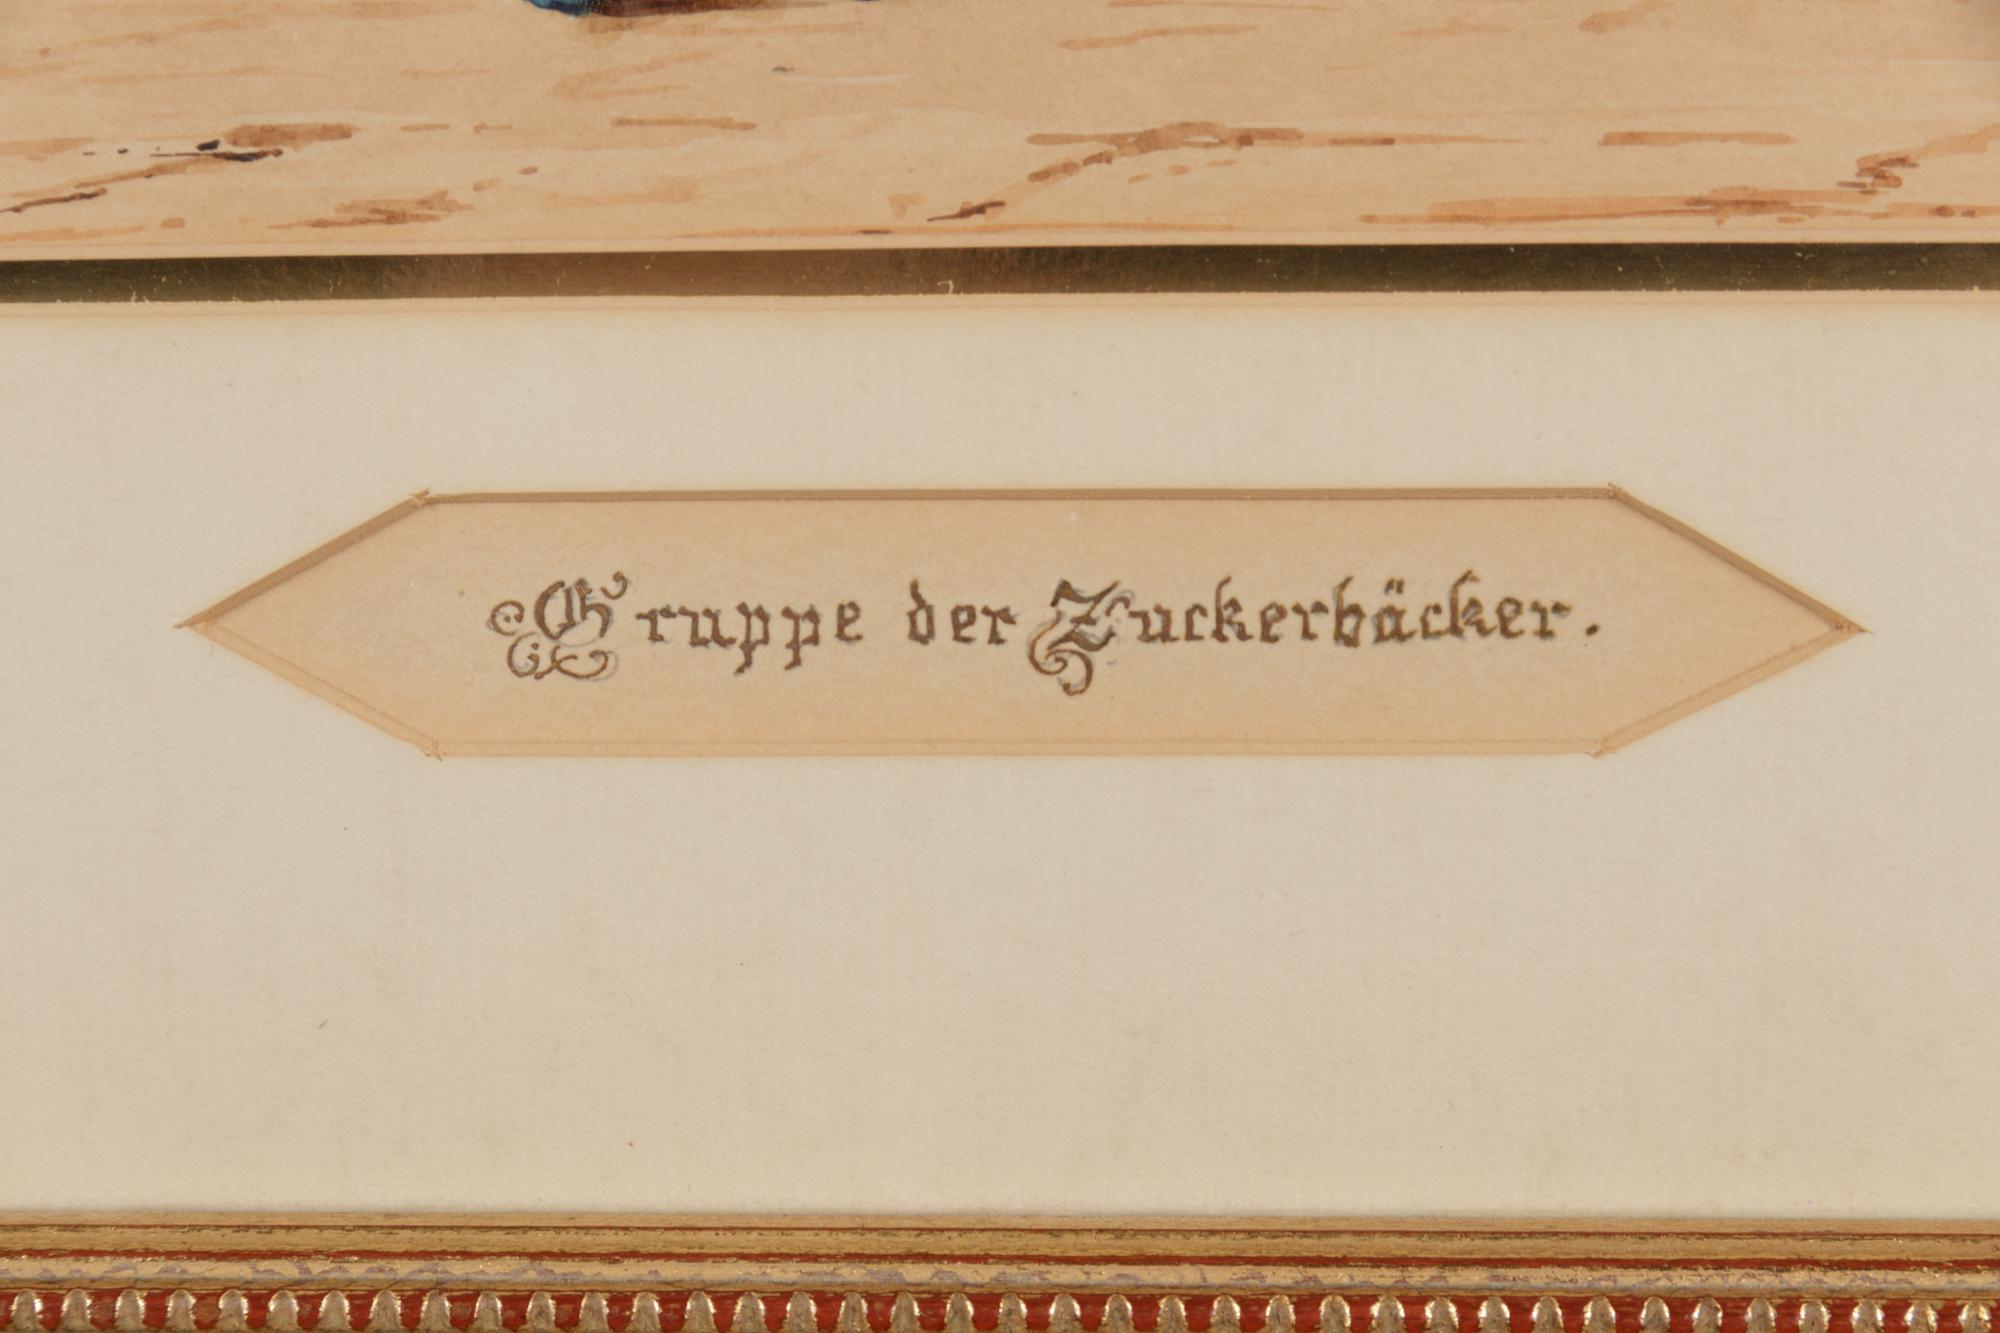 Gruppe der Zuckerbäcker.